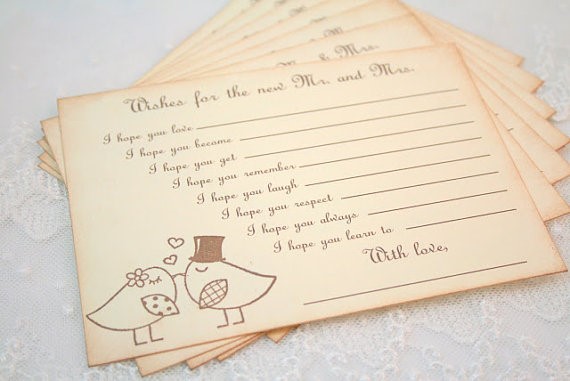 & Mrs.
Wishes for the new Mr. and Mrs.
I hope you love
I hope you become
I hope you get
I hope you remember
I hope you laugh
I hope you respect
I hope you always
I hope you learn to
With love,